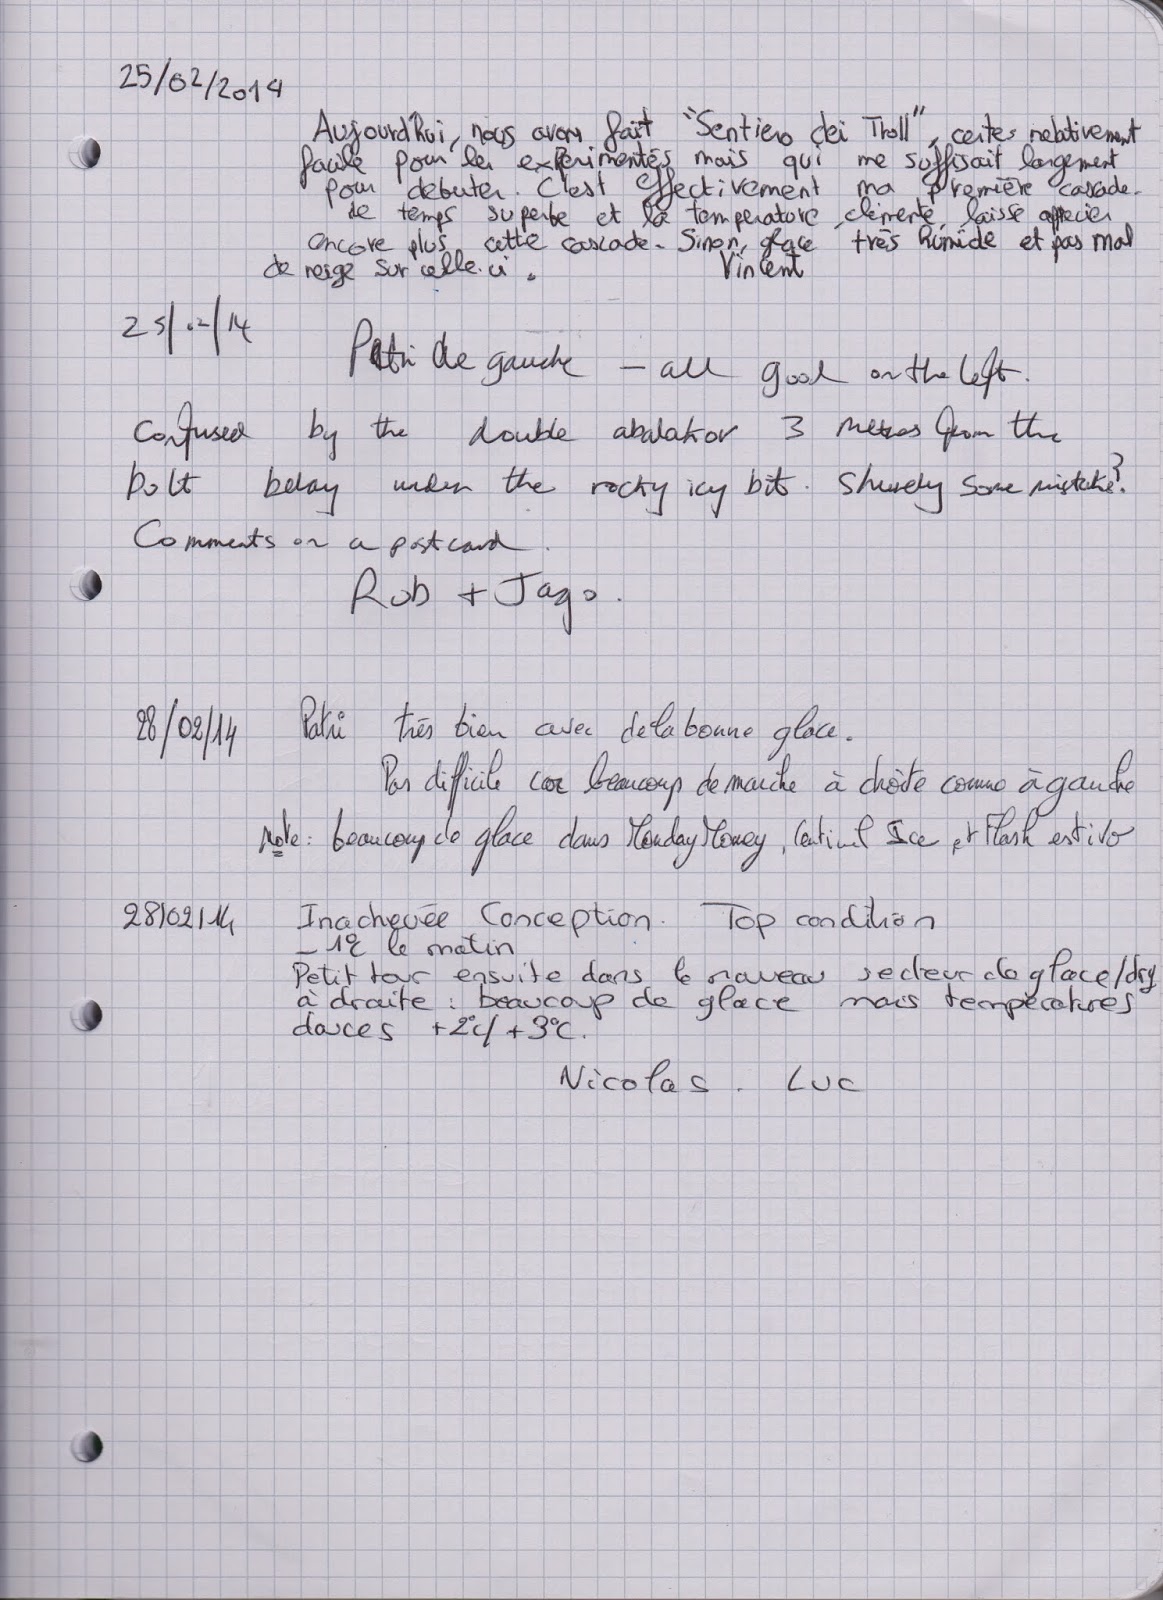 25/02/2014
Aujourd'hui, nous avons fait "Sentiero dei Troll", certes relativement
facile pour les expérimentés mais qui me suffisait largement
pour débuter. C'est effectivement ma première cascade.
de temps superbe et la température, clémente, laisse apprécier
encore plus cette cascade. Sinon, glace très humide et pas mal
de neige sur celle-ci.
Vincent
25/02/14
Patri de gauche - all good on the left.
Confused by the double abalakov 3 metres from the
bolt belay under the rocky icy bits. Shurely some mistake?
Comments on a postcard.
Rob + Jago.
28/02/14 Patri très bien avec de la bonne glace.
Pas difficile car beaucoup de marche à droite comme à gauche
Note: beaucoup de glace dans Monday Money, Centinel Ice et Flash estivo
28/02/14 Inachevée Conception. Top condition
-1°C le matin
Petit tour ensuite dans le nouveau secteur de glace/dry
à droite : beaucoup de glace mais températures
douces +2°C/+3°C.
Nicolas. Luc